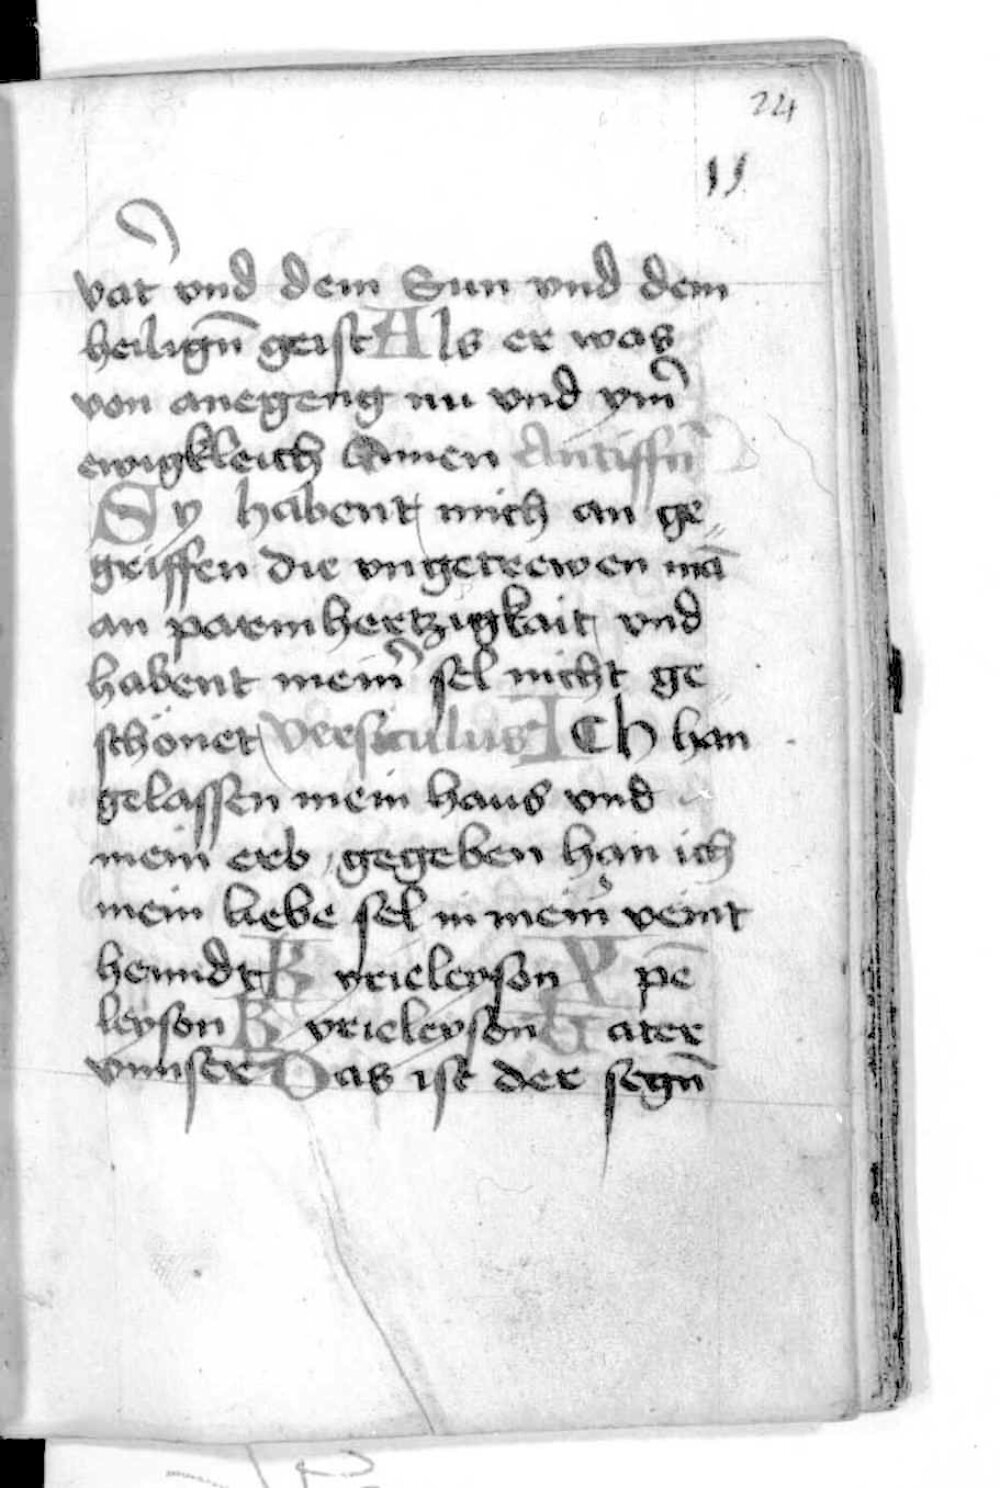 24
11
vat̄ vnd dem Sun vnd dem
heilign̄ geist Als er was
von anegeng nu vnd ym̄
ewigkleich Amen Antiffn̄
Sy habent mich an ge
griffen die vngetrewen mā
an parmhertzigkait vnd
habent mein̄ sel nicht ge
schönet Versiculus ICh han
gelassen mein haus vnd
mein erb gegeben han ich
mein liebe sel in mein̄ veint
henndt Kyrieleyson Xpē
leyson Kyrieleyson Vater
vnnser Das ist der segn̄